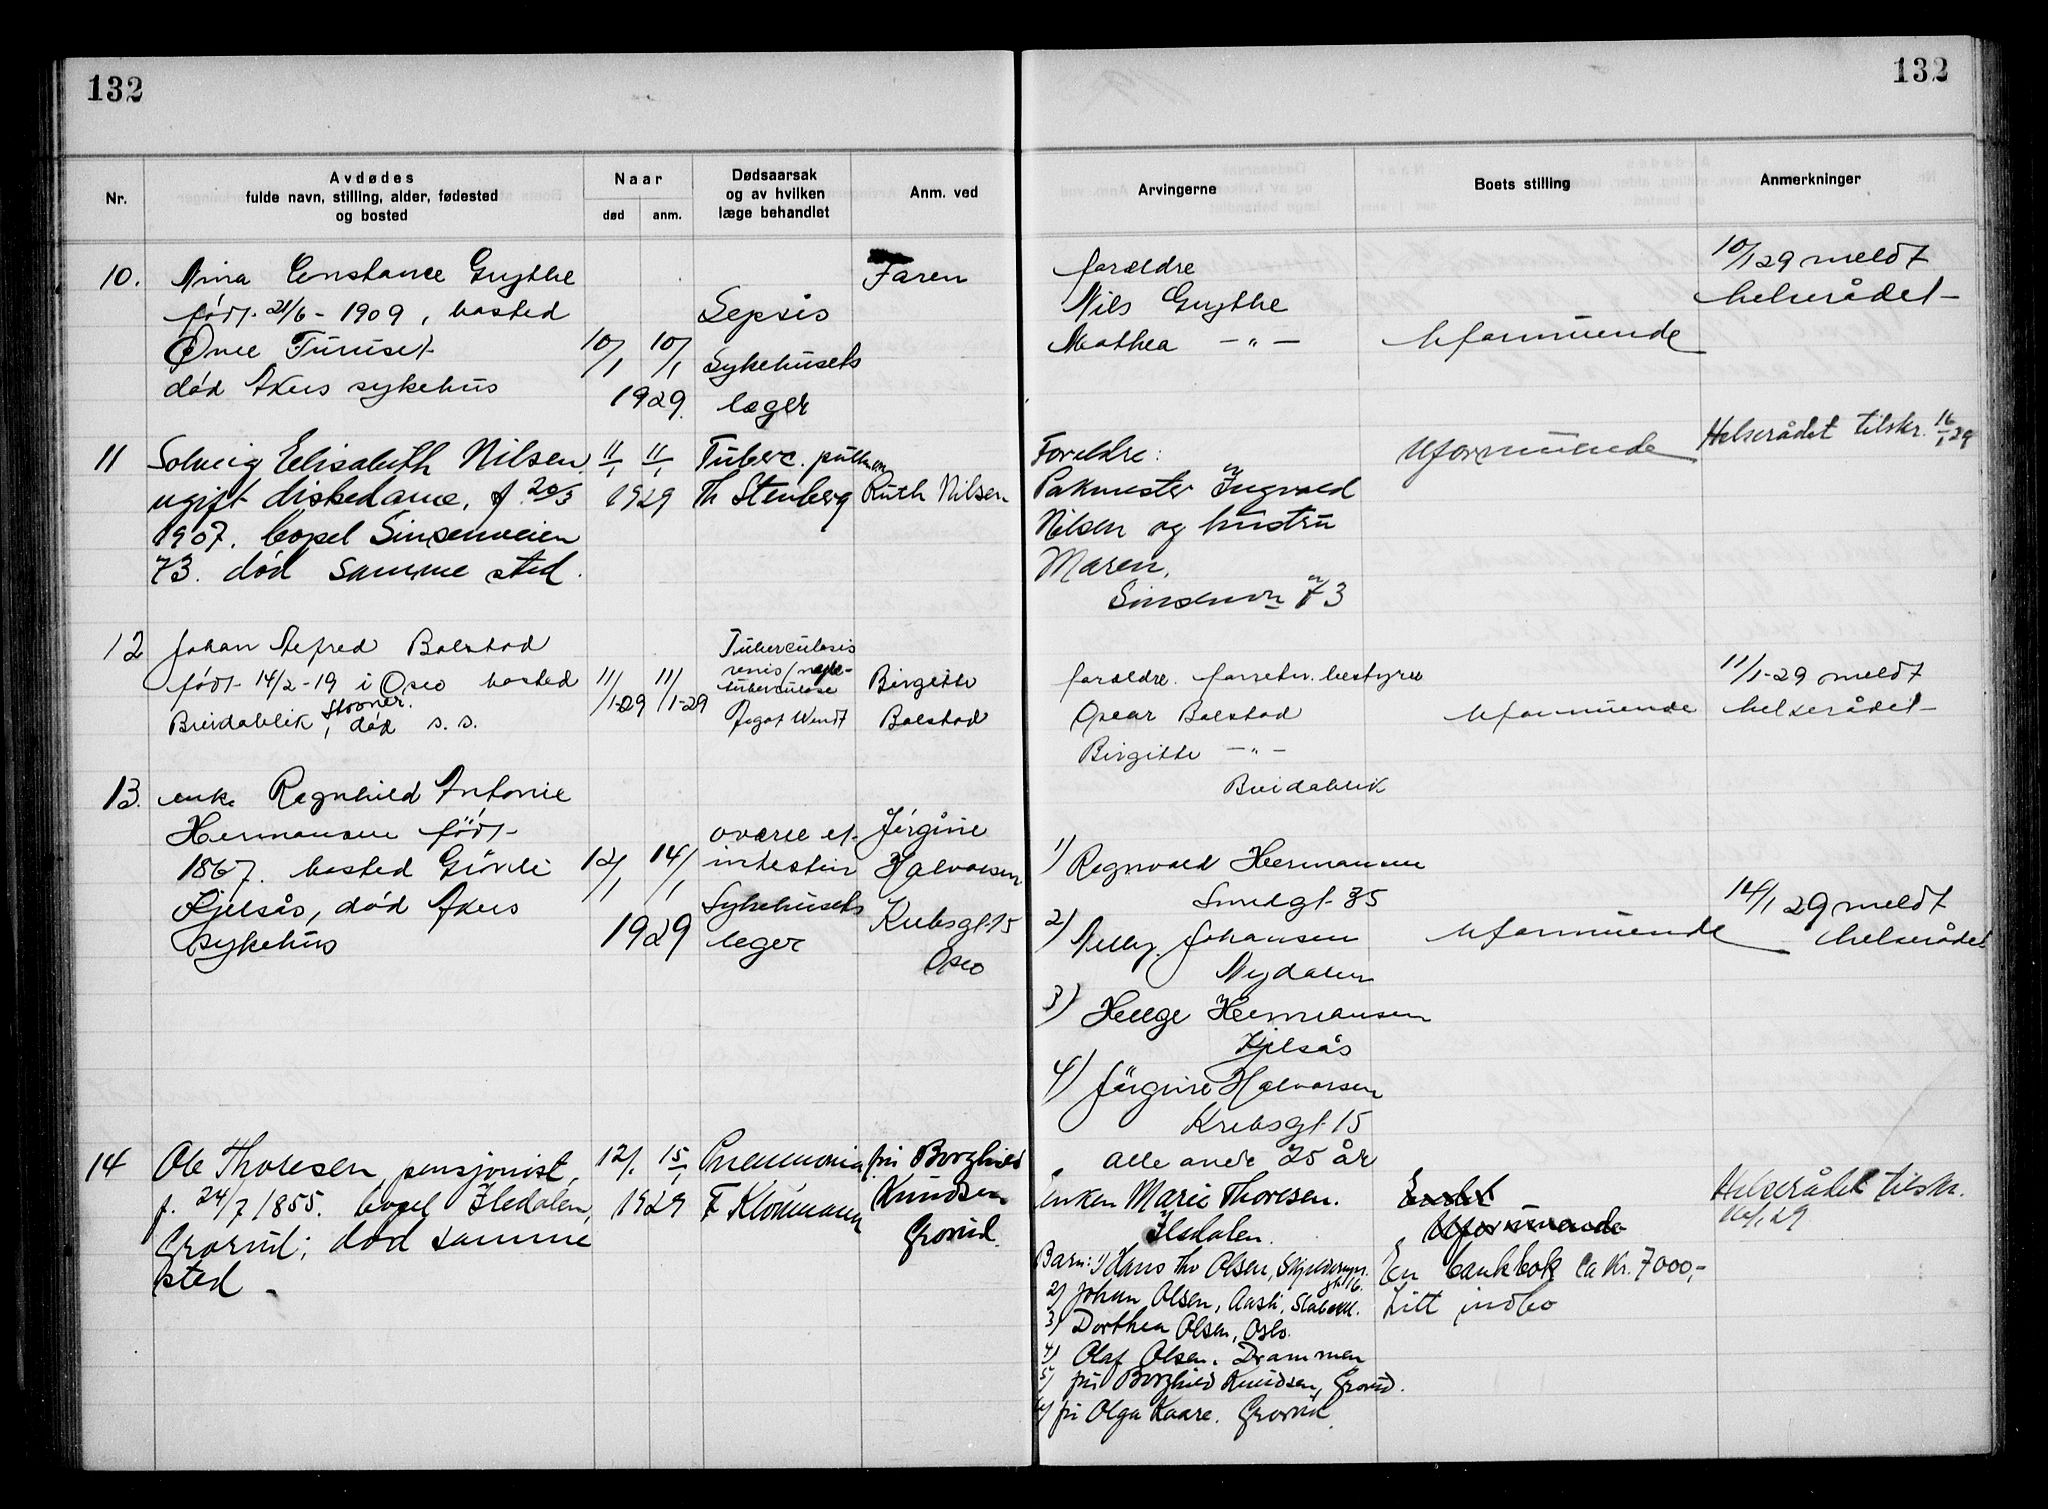 132
132
Nr.
Avdødes
fulde navn, stilling, alder, fødested
og bosted
Naar
død
anm.
Dødsaarsak
og av hvilken
læge behandlet
Anm. ved
Arvingerne
Boets stilling
Anmerkninger
10.
Nina Constance Gnythe
født 21/6 - 1909, bosted
Furuset
død Akers sykehus
10/1 10/1
1929.
Sepsis
Sykehusets
læger
Faren
forældre
Nils Gnythe
Mathea — " —
Uformuende
10/1 29 meldt
helserådet
11
Solveig Elisabeth Nilsen
ugift diskedame, f. 20/3
1907. bopel Sinsenveien
73. død samme sted.
11/1 11/1
1929
Tuberc. pulmon
Th Stenberg
Ruth Nilsen
Foreldre:
Pakmester Ingvald
Nilsen og hustru
Maren,
Sinsenvn 73
Uformuende
Helserådet tilskr. 16/1 29
12
Johan Alfred Bolstad
født 14/2 - 19 i Oslo bosted
Breidablik Stovner, død s. s.
11/1-29 11/1-29
Tuberculosis
renis/
tuberculose
Wendt
Birgitte
Bolstad
forældre. forretn. bestyrer
Oscar Bolstad
Birgitte — " —
Breidablik
Uformuende
11/1-29 meldt
helserådet
13.
enke Ragnhild Antonie
Hermansen født
1867. bosted
Kjelsås, død Akers
sykehus
12/1 14/1
1929
et
intestin
Sykehusets
leger
Jörgine
Halvorsen
Krebsgt. 15
Oslo
1) Ragnvald Hermansen
Smedgt. 35
2) Nelly Johansen
Nydalen
3) Helge Hermansen
Kjelsås
4) Jörgine Halvorsen
Krebsgt. 15
alle over 25 år
Uformuende
14/1 29 meldt
helserådet
14
Ole Thoresen pensjonist,
f. 24/7 1855. bopel Iledalen,
Grorud; død samme
sted.
12/1 15/1
1929
Pneumonia
F Kloumann
fru Borghild
Knudsen
Grorud.
Enken Marie Thoresen.
Iledalen.
Barn: 1) Hans Th. Olsen,
2) Johan Olsen, Stabekk.
3) Dorthea Olsen, Oslo.
4) Olaf Olsen. Drammen
5) fru Borghild Knudsen, Grorud.
6) fru Olga Kaare. Grorud.
Uformuende
En bankbok ca kr. 7000,-
Litt indbo
Helserådet tilskr.
16/1 29